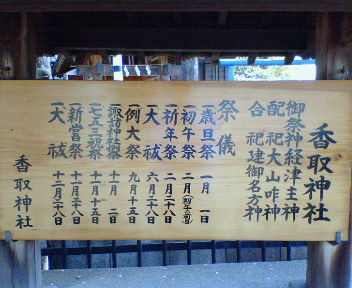 香取神社
御祭神経津主神
配祀大山咋神
合祀建御名方神
祭儀
一歳旦祭 一月一日
一初午祭 二月(初午の日)
一祈年祭 二月二八日
一大祓 六月二八日
一例大祭 九月十五日
一諏訪神社祭 十一月二日
一七五三祝祭 十一月十五日
一新嘗祭 十一月二八日
一大祓 十二月二八日
香取神社